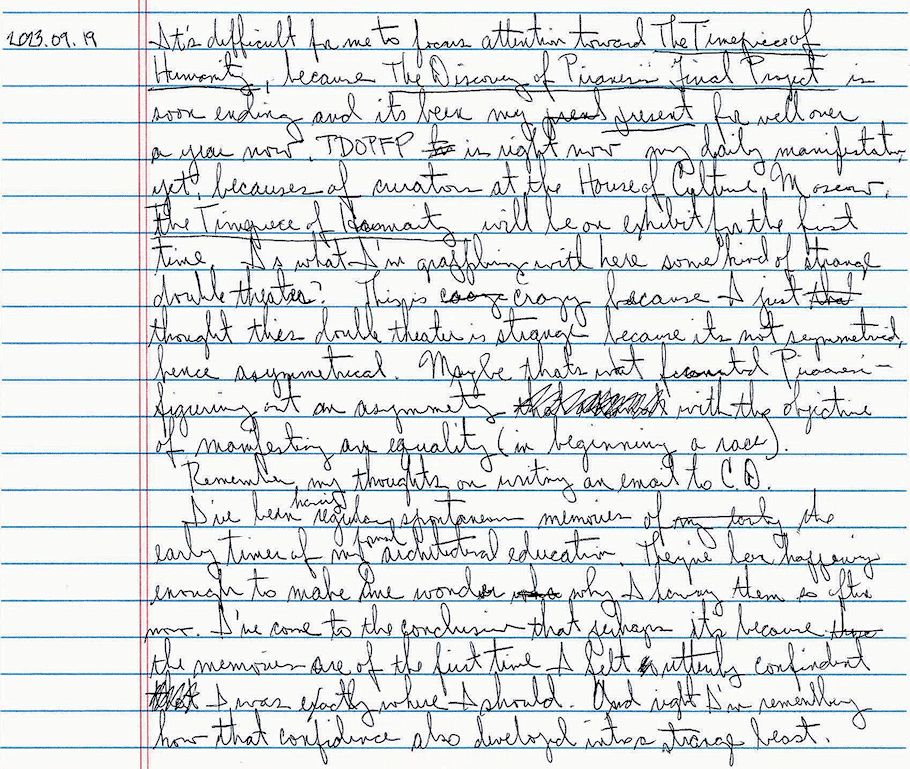 2023.09.19 It's difficult for me to focus attention toward The Timepiece of
Humanity, because The Discovery of Piranesi's Final Project is
soon ending and its been my present present for well over
a year now. TDOPFP is right now my daily manifestation,
yet, becauses of curators at the House of Culture, Moscow,
The Timepiece of Humanity will be on exhibit for the first
time. Is what I'm grappling with here some kind of strange
double theater? This is crazy because I just that
thought this double theater is strange because its not symmetrical,
hence asymmetrical. Maybe thats what fascinated Piranesi—
figuring out an asymmetry with the objective
of manifesting an equality (in beginning a race).
Remember my thoughts on writing an email to C.O.
I've been having regular spontaneous memories of my early the
early times of my formal architectural education. They've been happening
enough to make me wonder why I having them so often
now. I've come to the conclusion that perhaps its because these
the memories are of the first time I felt utterly confindent
that I was exactly where I should. And right I'm remembering
how that confidence also developed into a strange beast.